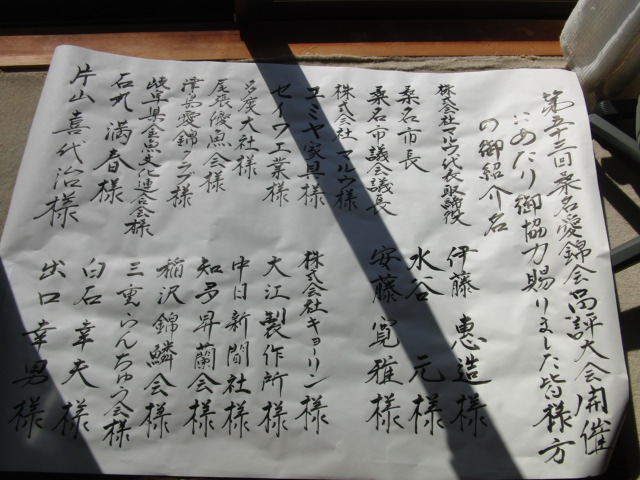 第五十三回桑名愛錦会品評大会開催
にあたり御協力賜りました皆様方
の御紹介名
株式会社マルウ代表取締役 伊藤恵造様
桑名市長 水谷元様
桑名市議会議長 安藤寛雅様
株式会社マルウ様
ユミヤ家具様
セイワ工業様
多度大社様
尾張優魚会様
津島愛錦クラブ様
岐阜県金魚文化連合会様
石丸満春様
片山喜代治様
株式会社キョーリン様
大江製作所様
中日新聞社様
知多昇蘭会様
稲沢錦鱗会様
三重らんちゅう会様
白石幸夫様
出口幸男様